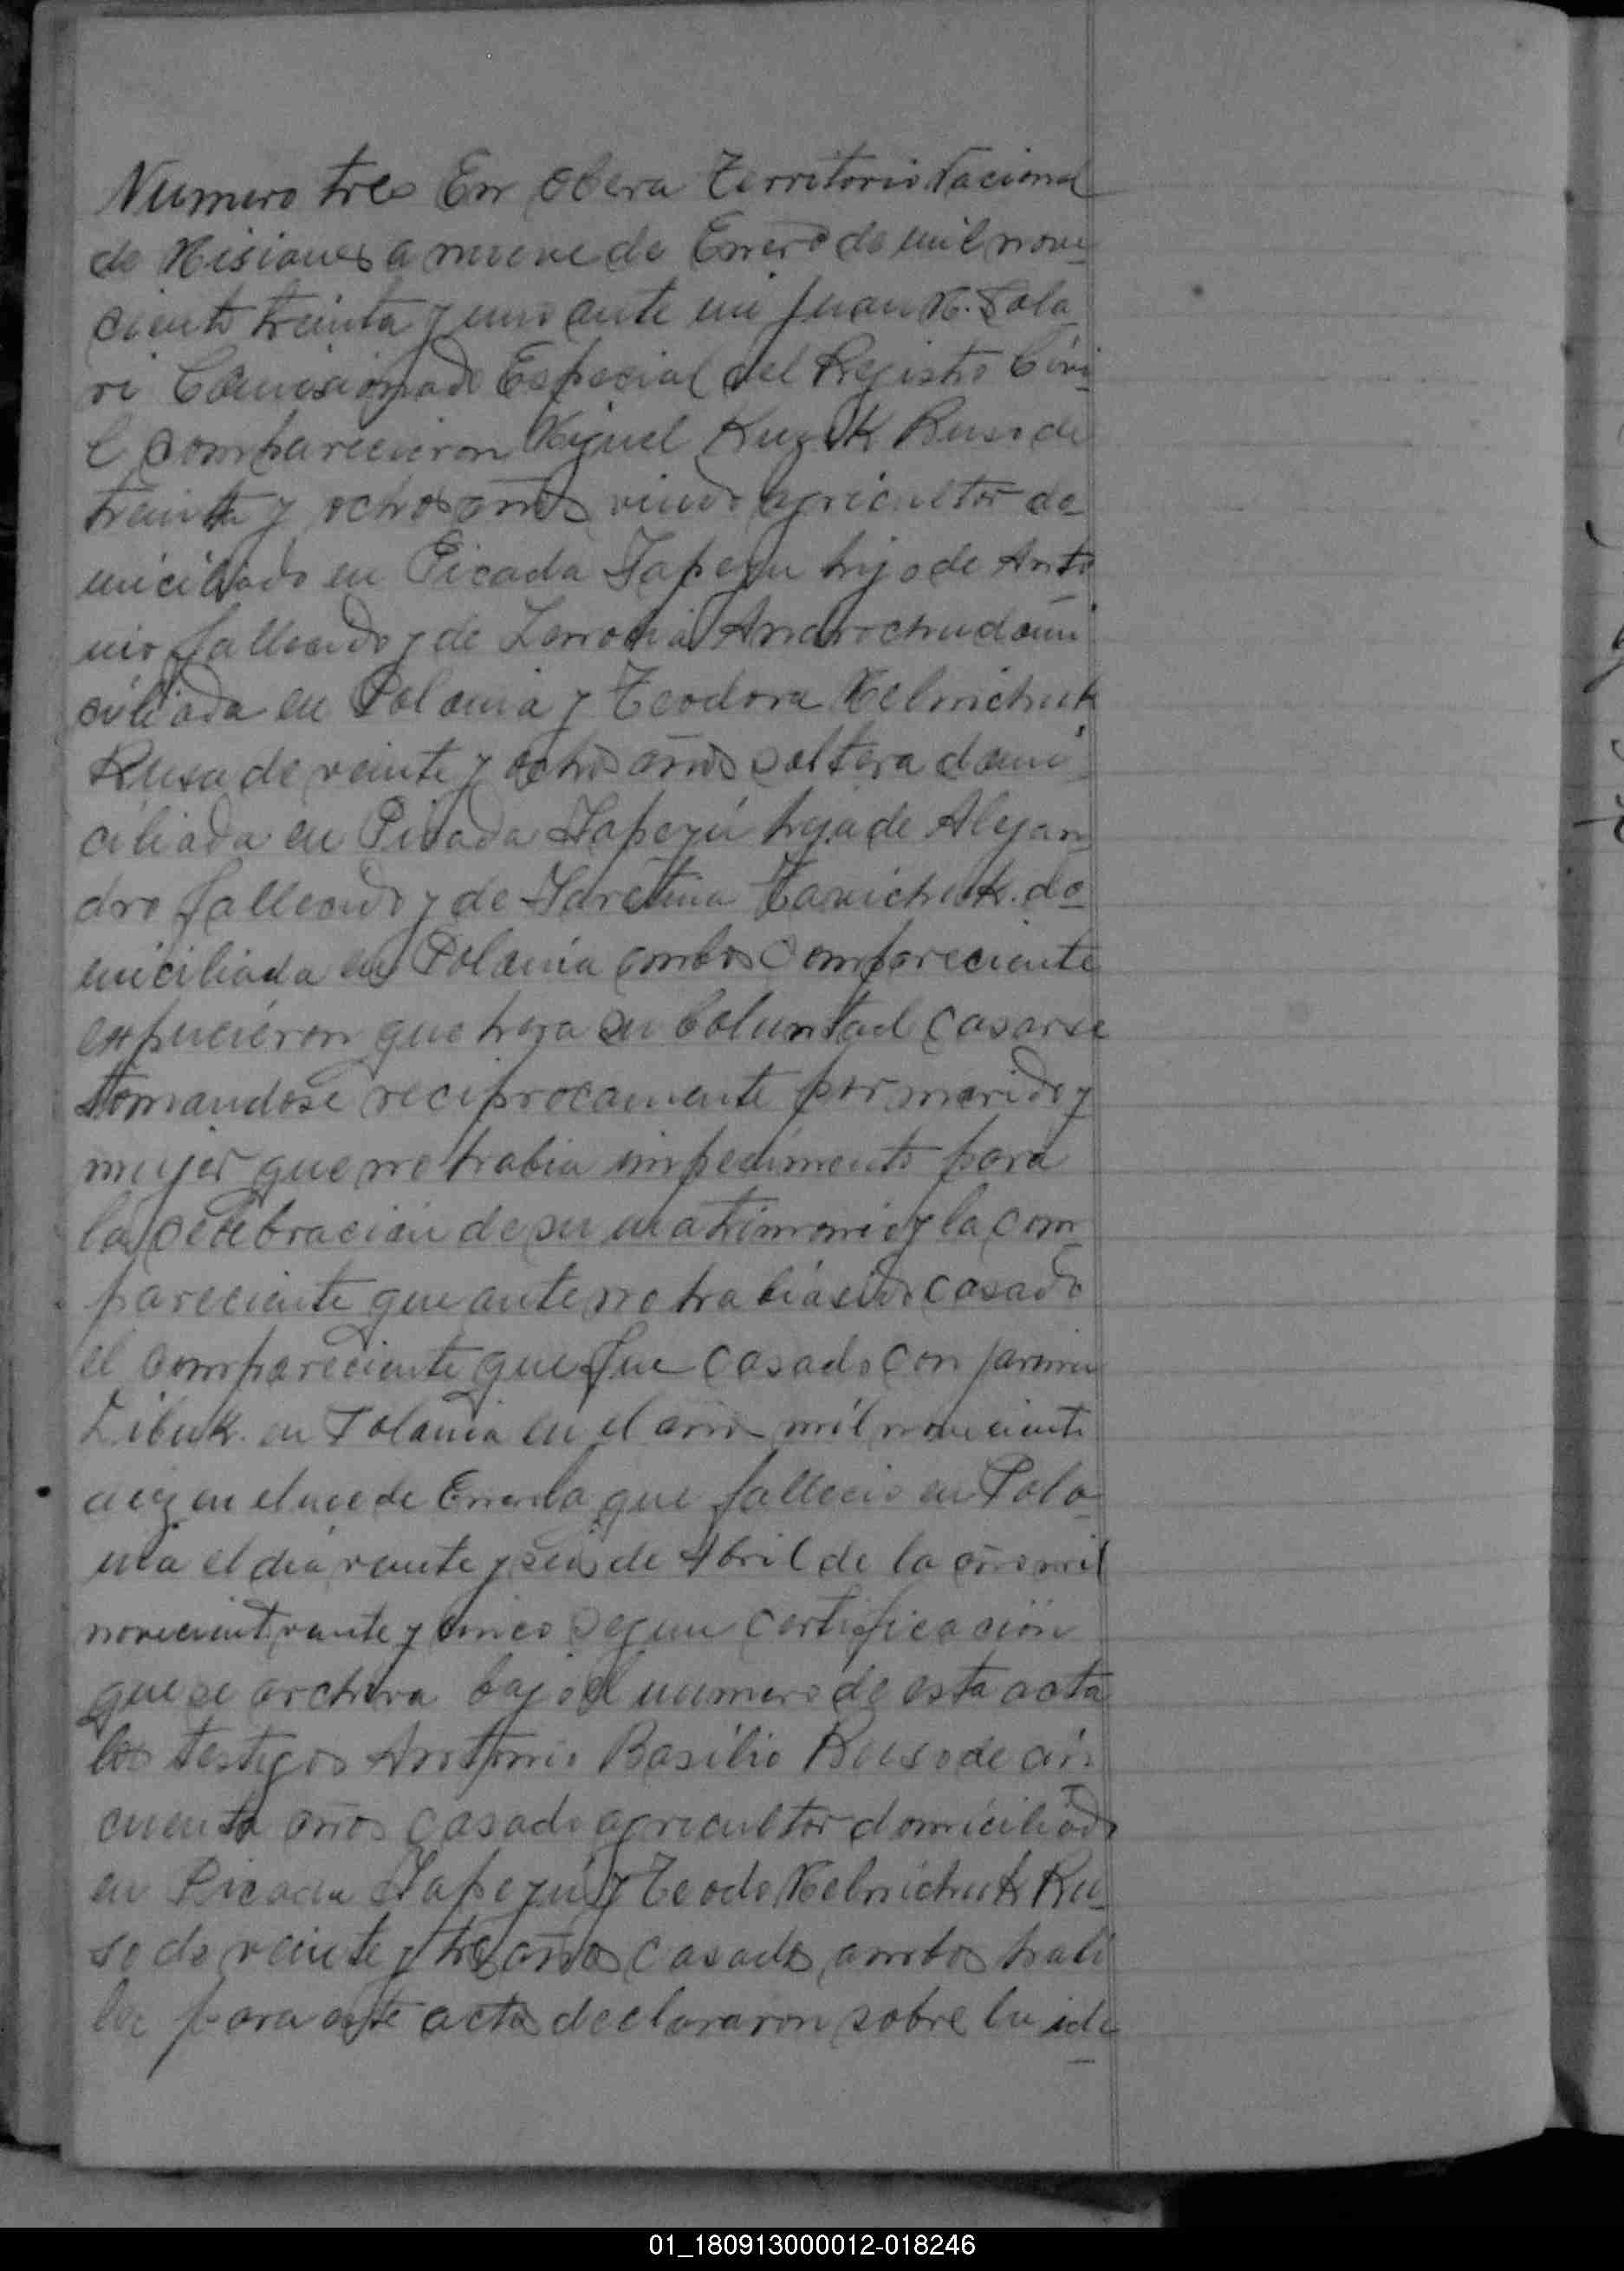 Numero tres En Obera Territorio Nacional
de Misiones a nueve de Enero de mil nove
ciento treinta y uno ante mi Juan M. Sola
ri Comisionado Especial del Registro Civi
l comparecieron Miguel Kuzuk Ruso de
treinta y ochos años viudo agricultor do
miciliado en Picada Yapeyu hijo de Anto
nio fallecido y de Androchud domi
ciliada en Polonia y Teodora Melnichuk
Rusa de veinte y ochos años soltera domi
ciliada en Picada Yapeyú hija de Alejan
dro fallecido y de do
miciliada en Polonia ambos compareciente
expucieron que hera su boluntad casarse
tomandose reciprocamente por marido y
mujer que no habia impedimento para
la celebracion de su matrimonio y la com
pareciente que ante no habia sido casado
el compareciente que fue casado con
Zibuk en Polonia en el año mil noveciento
diez en el mes de Enero la que fallecio en Polo
nia el dia veinte y seis de Abril de la año mil
noveciento veinte y cinco segun certificación
que se archiva bajo el numero de esta acta
los testigos Antonio Basilio Ruso de cin
cuenta años casado agricultor domiciliado
en Picada Yapeyú y Teodo Melnichuk Ru
so de veinte y tres años casado ambos habi
les para este acto declararon sobre la ide
01_180913000012-018246